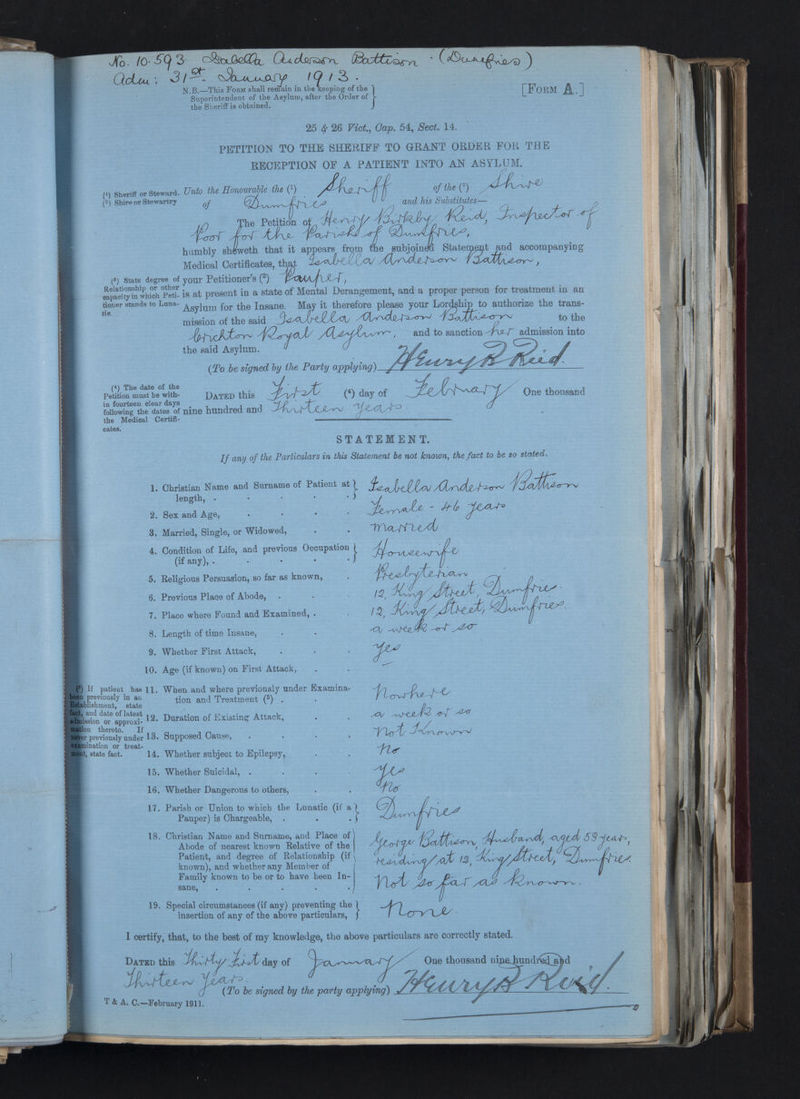 No. 10.593 Isabella Anderson Battison - (Dumfries)
Adm: 31st January 1913.
N.B.—This Form shall remain in the keeping of the
Superintendent of the Asylum, after the Order of
the Sheriff is obtained.
[Form A.]
25 & 26 Vict., Cap. 54, Sect. 14.
PETITION TO THE SHERIFF TO GRANT ORDER FOR THE
RECEPTION OF A PATIENT INTO AN ASYLUM.
(¹) Sheriff or Steward.
(²) Shire or Stewartry
Unto the Honourable the (¹) Sheriff of the (²) Shire
of Dumfries and his Substitutes—
The Petition of Henry Birkby Reid, Inspector of
Poor for the Parish of Dumfries,
humbly sheweth that it appears from the subjoined Statement and accompanying
Medical Certificates, that Isabella Anderson Battison,
(³) State degree of
Relationship or other
capacity in which Peti-
tioner stands to Luna-
tic.
your Petitioner's (³) Pauper,
is at present in a state of Mental Derangement, and a proper person for treatment in an
Asylum for the Insane. May it therefore please your Lordship to authorize the trans-
mission of the said Isabella Anderson Battison to the
Crichton Royal Asylum, and to sanction her admission into
the said Asylum.
(To be signed by the Party applying) Henry B Reid.
(⁴) The date of the
Petition must be with-
in fourteen clear days
following the dates of
the Medical Certifi-
cates.
Dated this First (⁴) day of February One thousand
nine hundred and Thirteen years
STATEMENT.
If any of the Particulars in this Statement be not known, the fact to be so stated.
1. Christian Name and Surname of Patient at
length, . Isabella Anderson Battison
2. Sex and Age, Female - 46 years
3. Married, Single, or Widowed, Married
4. Condition of Life, and previous Occupation
(if any), . Housewife
5. Religious Persuasion, so far as known, Presbyterian
6. Previous Place of Abode, . 12, King Street, Dumfries
7. Place where Found and Examined, . 12, King Street, Dumfries.
8. Length of time Insane, a week or so
9. Whether First Attack, Yes
10. Age (if known) on First Attack, —
(⁵) If patient has
been previously in an
Establishment, state
fact, and date of latest
admission or approxi-
mation thereto. If
never previously under
examination or treat-
ment, state fact.
11. When and where previously under Examina-
tion and Treatment (⁵) . Nowhere
12. Duration of Existing Attack, a week or so
13. Supposed Cause, Not Known
14. Whether subject to Epilepsy, No
15. Whether Suicidal, . Yes
16. Whether Dangerous to others, No
17. Parish or Union to which the Lunatic (if a
Pauper) is Chargeable, . Dumfries
18. Christian Name and Surname, and Place of
Abode of nearest known Relative of the
Patient, and degree of Relationship (if
known), and whether any Member of
Family known to be or to have been In-
sane,
George Battison, Husband, aged 59 years,
residing at 12, King Street, Dumfries.
Not so far as known.
19. Special circumstances (if any) preventing the
insertion of any of the above particulars, None
I certify, that, to the best of my knowledge, the above particulars are correctly stated.
Dated this Thirty First day of January One thousand nine hundred and
Thirteen years.
(To be signed by the party applying) Henry B Reid.
T & A. C.—February 1911.